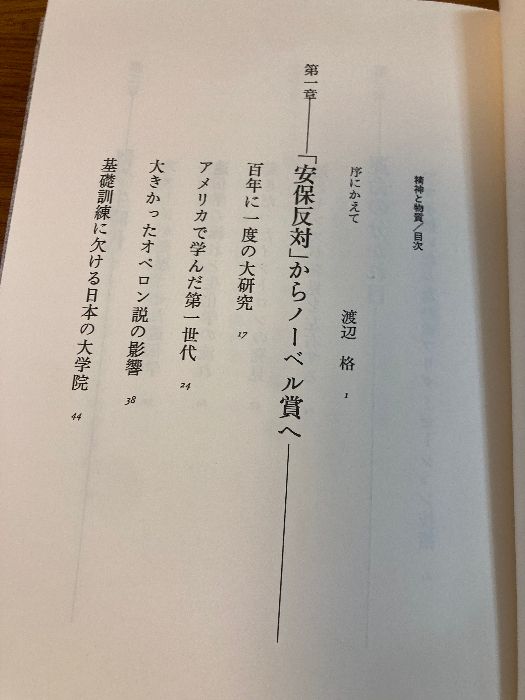 精神と物質/目次
序にかえて 渡辺 格 1
第一章――「安保反対」からノーベル賞へ――
百年に一度の大研究 17
アメリカで学んだ第一世代 24
大きかったオペロン説の影響 38
基礎訓練に欠ける日本の大学院 44